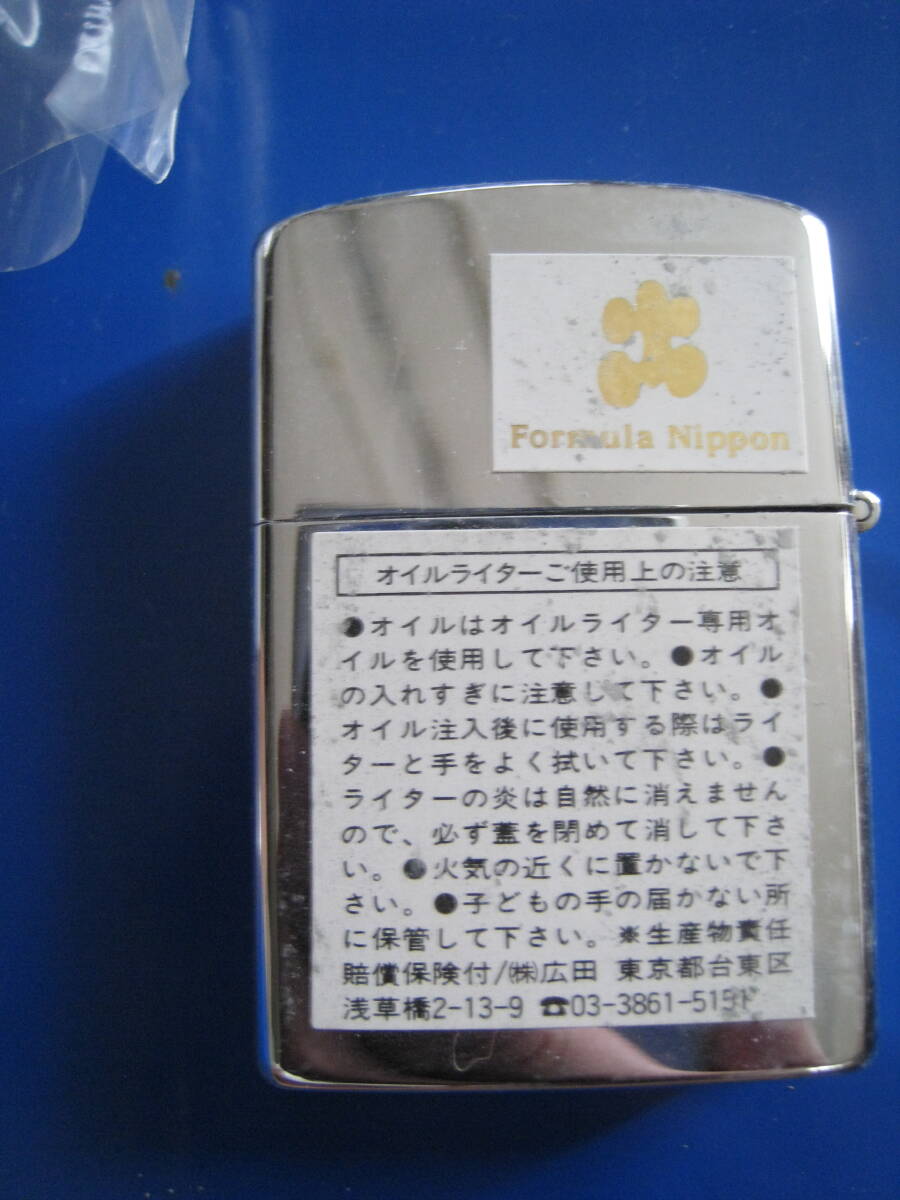 Formula Nippon
オイルライターご使用上の注意
●オイルはオイルライター専用オ
イルを使用して下さい。●オイル
の入れすぎに注意して下さい。●
オイル注入後に使用する際はライ
ターと手をよく拭いて下さい。●
ライターの炎は自然に消えません
ので、必ず蓋を閉めて消して下さ
い。●火気の近くに置かないで下
さい。●子どもの手の届かない所
に保管して下さい。※生産物責任
賠償保険付/㈱広田 東京都台東区
浅草橋2-13-9 ☎03-3861-5151